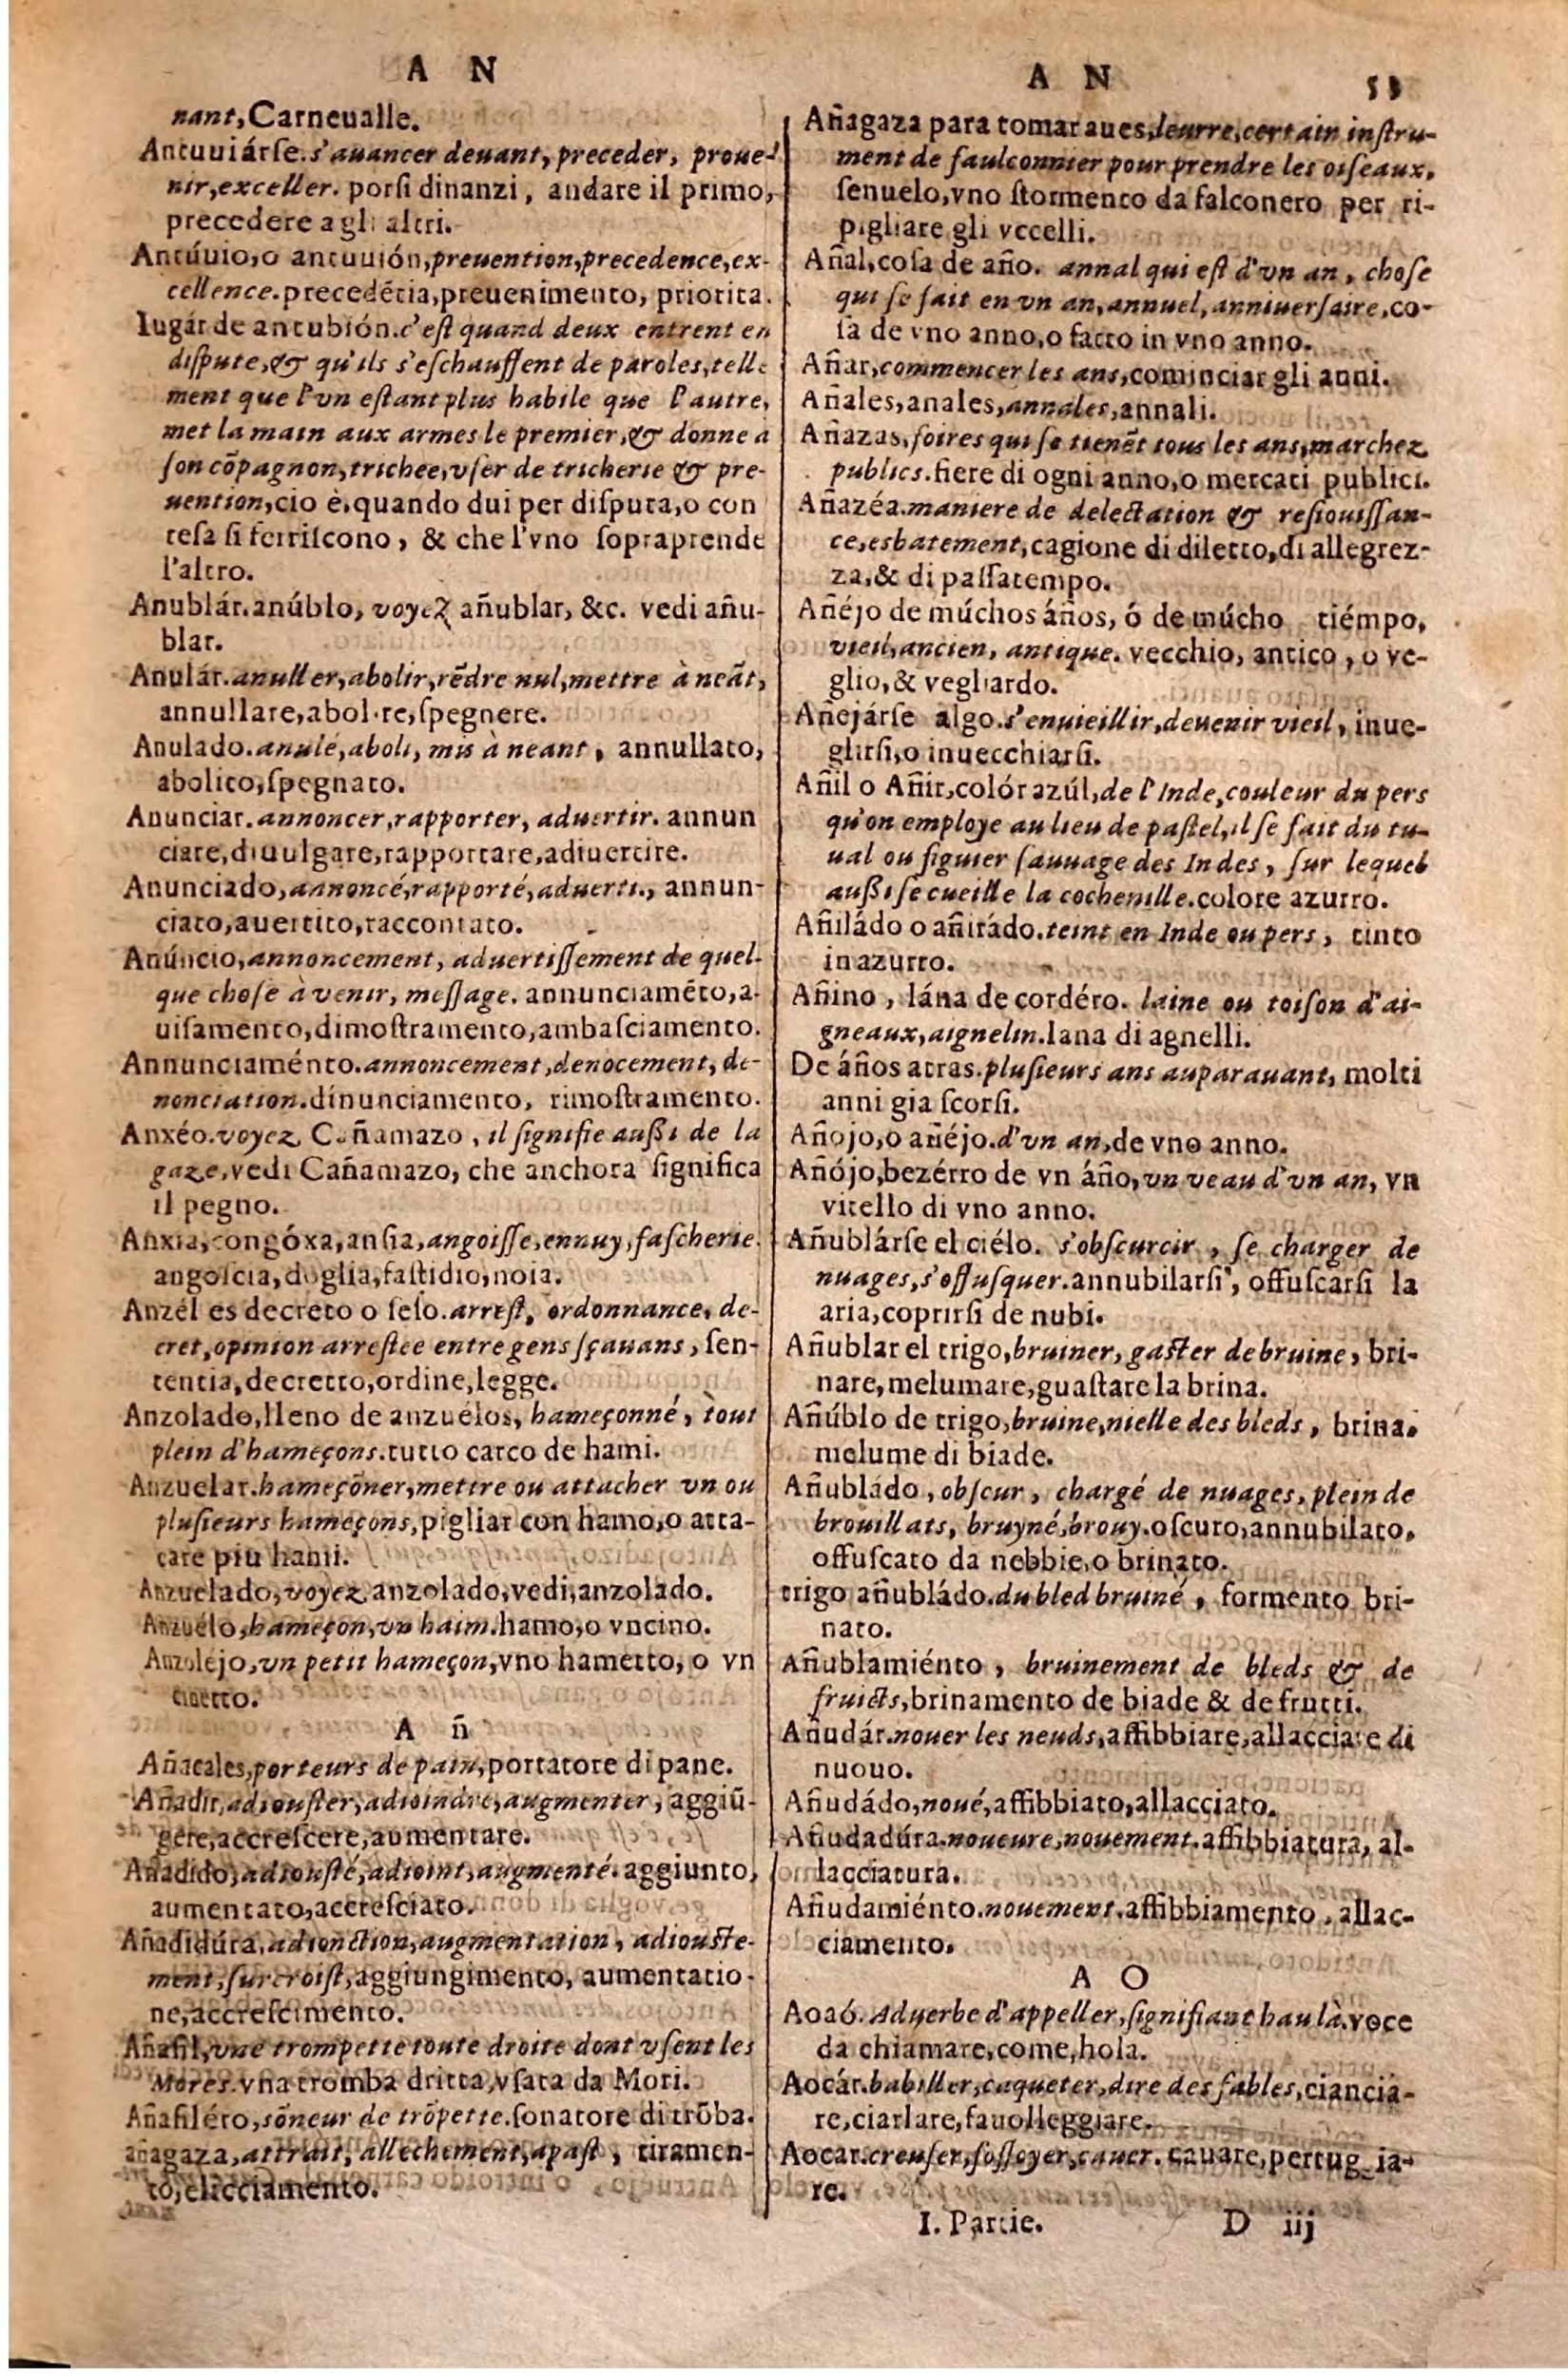 A N
nant, Carneualle.
Antuuiárſe. s'auancer deuant, preceder, proue-
nir, exceller. porſi dinanzi, andare il primo,
precedere a gli altri.
Antúuio, o antuuión, preuention, precedence, ex-
cellence. precedẽtia, preuenimento, priorita.
lugár de antubión. c'eſt quand deux entrent en
diſpute, & qu'ils s'eſchauffent de paroles, telle
ment que l'vn eſtant plus habile que l'autre,
met la main aux armes le premier, & donne à
ſon cõpagnon, trichee, vſer de tricherie & pre-
uention, cio è, quando dui per diſputa, o con
teſa ſi feriſcono, & che l'vno ſopraprende
l'altro.
Anublár. anúblo, voyez añublar, &c. vedi añu-
blar.
Anulár. anuller, abolir, rẽdre nul, mettre à neãt,
annullare, abolire, ſpegnere.
Anulado. anulé, aboli, mis à neant, annullato,
abolito, ſpegnato.
Anunciar. annoncer, rapporter, aduertir. annun
ciare, diuulgare, rapportare, adiuertire.
Anunciado, annoncé, rapporté, aduerti., annun-
ciato, auertito, raccontato.
Anúncio, annoncement, aduertiſſement de quel-
que choſe à venir, meſſage. annunciamẽto, a-
uiſamento, dimoſtramento, ambaſciamento.
Annunciaménto. annoncement, denocement, de-
nonciation. dinunciamento, rimoſtramento.
Anxéo. voyez Cañamazo, il ſignifie auſſi de la
gaze, vedi Cañamazo, che anchora ſignifica
il pegno.
Anxia, congóxa, anſia, angoiſſe, ennuy, faſcherie.
angoſcia, doglia, faſtidio, noia.
Anzél es decreto o ſeſo. arreſt, ordonnance, de-
cret, opinion arreſtee entre gens ſçauans, ſen-
tentia, decretto, ordine, legge.
Anzolado, lleno de anzuélos, hameçonné, tout
plein d'hameçons. tutto carco de hami.
Anzuelar. hameçõner, mettre ou attacher vn ou
pluſieurs hameçons, pigliar con hamo, o atta-
care piu hami.
Anzuelado, voyez anzolado, vedi, anzolado.
Anzuélo, hameçon, vn haim. hamo, o vncino.
Anzolejo, vn petit hameçon, vno hametto, o vn
cinetto.
A ñ
Añacales, porteurs de pain, portatore di pane.
Añadir, adiouſter, adioindre, augmenter, aggiũ-
gere, accreſcere, aumentare.
Añadido, adiouſté, adioint, augmenté. aggiunto,
aumentato, accreſciato.
Añadidúra, adionction, augmentation, adiouſte-
ment, ſurcroiſt, aggiungimento, aumentatio-
ne, accreſcimento.
Añafil, vne trompette toute droite dont vſent les
Mores. vna tromba dritta, vſata da Mori.
Añafiléro, sõneur de trõpette. ſonatore di trõba.
añagaza, attrait, allechement, apaſt, tiramen-
to, elicciamento.
A N 53
Añagaza para tomar aues, leurre, certain inſtru-
ment de faulconnier pour prendre les oiſeaux,
ſenuelo, vno ſtormento da falconero per ri-
pigliare gli vccelli.
Añal, coſa de año. annal qui eſt d'vn an, choſe
qui ſe fait en vn an, annuel, anniuerſaire, co-
ſa de vno anno, o facto in vno anno.
Añar, commencer les ans, cominciar gli anni.
Añales, anales, annales, annali.
Añazas, foires qui ſe tienẽt tous les ans, marchez
publics. fiere di ogni anno, o mercati publici.
Añazéa. maniere de delectation & reſiouiſſan-
ce, esbatement, cagione di diletto, di allegrez-
za, & di paſſatempo.
Añéjo de múchos áños, ó de múcho tiémpo,
vieil, ancien, antique. vecchio, antico, o ve-
glio, & vegliardo.
Añejárſe algo. s'enuieillir, deuenir vieil, inue-
glirſi, o inuecchiarſi.
Añil o Añir, colór azúl, de l'Inde, couleur du pers
qu'on employe au lieu de paſtel, il ſe fait du tu-
ual ou figuier ſauuage des Indes, ſur lequel
auſſi ſe cueille la cochenille. colore azurro.
Añiládo o añirádo. teint en Inde ou pers, tinto
in azurro.
Añino, lána de cordéro. laine ou toiſon d'ai-
gneaux, aignelin. lana di agnelli.
De áños atras. pluſieurs ans auparauant, molti
anni gia ſcorſi.
Añojo, o añéjo. d'vn an, de vno anno.
Añójo, bezérro de vn áño, vn veau d'vn an, vn
vitello di vno anno.
Añublárſe el ciélo. s'obſcurcir, ſe charger de
nuages, s'offuſquer. annubilarſi, offuſcarſi la
aria, coprirſi de nubi.
Añublar el trigo, bruiner, gaſter de bruine, bri-
nare, melumare, guaſtare la brina.
Añúblo de trigo, bruine, nielle des bleds, brina,
melume di biade.
Añubládo, obſcur, chargé de nuages, plein de
brouillats, bruyné, brouy. oſcuro, annubilato,
offuſcato da nebbie, o brinato.
trigo añubládo. du bled bruiné, formento bri-
nato.
Añublamiénto, bruinement de bleds & de
fruicts, brinamento de biade & de frutti.
Añudár. nouer les neuds, affibbiare, allacciare di
nuouo.
Añudádo, noué, affibbiato, allacciato.
Añudadúra. noueure, nouement. affibbiatura, al-
lacciatura.
Añudamiénto. nouement. affibbiamento, allac-
ciamento.
A O
Aoaó. Aduerbe d'appeller, ſignifiant hau là. voce
da chiamare, come, hola.
Aocár. babiller, caqueter, dire des fables, cianciá-
re, ciarlare, fauolleggiare.
Aocar. creuſer, foſſoyer, cauer. cauare, pertugia-
re.
I. Partie. D iij